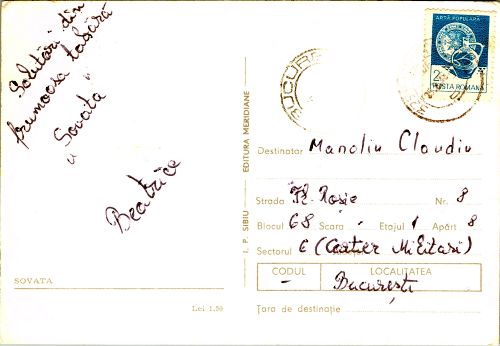 Salutări din
frumoasa tabără
"Sovata"
Beatrice
SOVATA
Lei 1,50
I. P. SIBIU EDITURA MERIDIANE
BUCUREȘ
ARTĂ POPULARĂ
2
POSTA ROMANA
Destinator Manoliu Claudiu
Strada Roșie Nr. 8
Blocul 68 Scara Etajul 1 Apărt 8
Sectorul 6 (Cartier Militari)
CODUL LOCALITATEA
- București
Țara de destinație